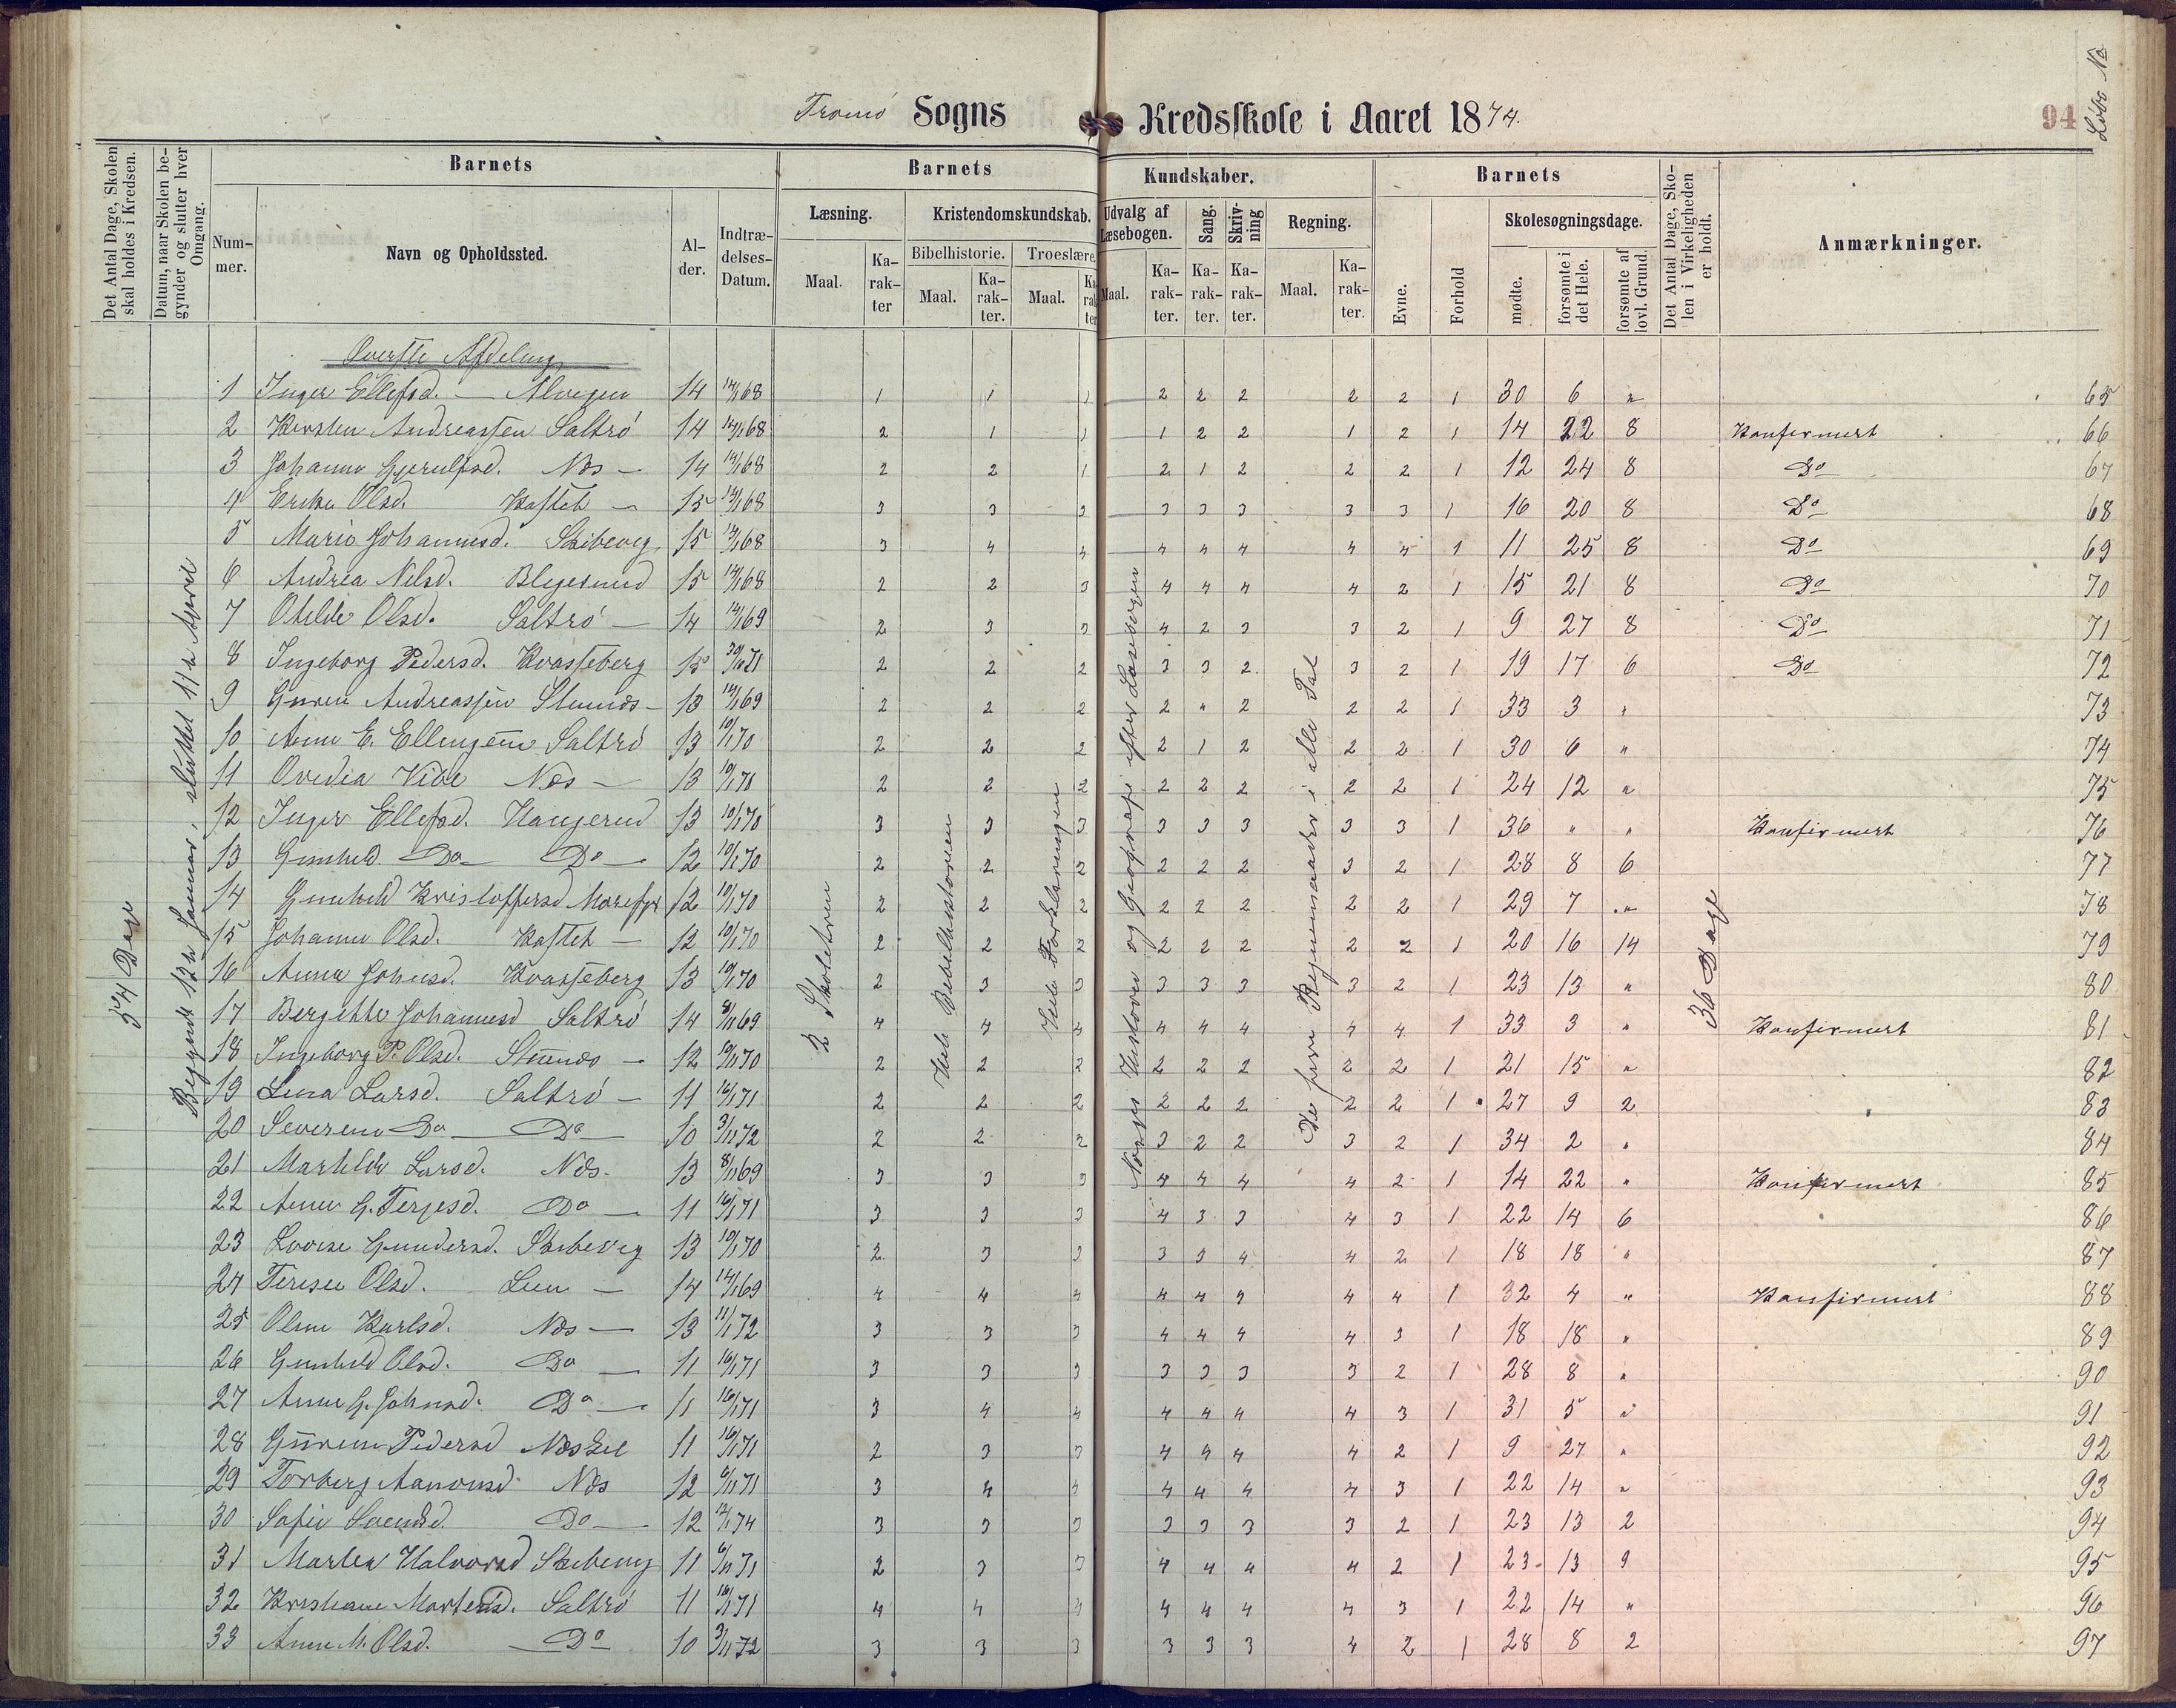 Tromö Sogns Kredsskole i Aaret 1874.
94
Löbe No
Det Antal Dage, Skolen skal holdes i Kredsen.
Datum, naar Skolen begynder og slutter hver Omgang.
Barnets
Nummer.
Navn og Opholdssted.
Alder.
Indtrædelses-Datum.
Barnets Kundskaber.
Læsning.
Maal.
Karakter
Kristendomskundskab.
Bibelhistorie.
Maal.
Karakter.
Troeslære.
Maal.
Karakter
Udvalg af Læsebogen.
Maal.
Karakter.
Sang.
Karakter.
Skrivning
Karakter.
Regning.
Maal.
Karakter.
Barnets
Evne.
Forhold
Skolesøgningsdage.
mødte.
forsømte i det Hele.
forsømte af lovl. Grund.
Det Antal Dage, Skolen i Virkeligheden er holdt.
Anmærkninger.
54 Dage
Begyndt 12te Januar, sluttet 11te April
2 Skoletrin
Hele Bibelhistorien
Hele Forklaringen
Norges Historie og Geografi efter Læsebogen
De fire Regningsarter i hele Tal
36 Dage
Øverste Afdeling
1 Inger Ellefsd. — 14 14/1 68 1 1 1 2 2 2 2 2 1 30 6 " 65
2 Kirsten Andreassen Saltrö 14 14/1 68 2 1 1 1 2 2 1 2 1 14 22 8 Konfirmert 66
3 Johanne Gjerulfsd. Næs — 14 14/1 68 2 2 1 2 1 2 2 2 1 12 24 8 Do 67
4 Ericka Olsd. Kastet — 15 14/1 68 3 3 3 3 3 3 3 3 1 16 20 8 Do 68
5 Marie Johannesd. Skibevig 15 14/1 68 3 4 4 4 4 4 4 4 1 11 25 8 Do 69
6 Andrea Nilsd. 15 14/1 68 2 2 3 4 4 4 4 2 1 15 21 8 Do 70
7 Otilde Olsd. Saltrö — 14 14/1 69 2 3 3 4 2 3 3 2 1 9 27 8 Do 71
8 Ingeborg Pedersd. Kvasseberg 15 71 2 2 2 3 3 2 3 2 1 19 17 6 Do 72
9 Guren Andreassen — 13 14/1 69 2 2 2 2 " 2 2 2 1 33 3 " 73
10 Anne E. Ellingsen Saltrö 13 10/1 70 2 2 2 2 1 2 2 2 1 30 6 " 74
11 Ovedia Vibe Næs — 13 10/1 70 2 2 2 2 2 2 2 2 1 24 12 " 75
12 Inger Ellefsd. Haugerud 13 10/1 70 3 3 3 3 3 3 3 3 1 36 " " Konfirmert 76
13 Gunhild Do — Do — 12 10/1 70 2 2 2 2 2 2 3 2 1 28 8 6 77
14 Gunhild Kristoffersd Morefjær 12 10/1 70 2 2 2 2 2 2 2 2 1 29 7 " 78
15 Johanne Olsd. Kastet — 12 10/1 70 2 2 2 2 2 2 2 2 1 20 16 14 79
16 Anna Johnsd. Kvasseberg 13 10/1 70 2 3 3 3 3 3 3 2 1 23 13 " 80
17 Bergitte Johannesd Saltrö 14 8/11 69 4 4 4 4 4 4 4 4 1 33 3 " Konfirmert 81
18 Ingeborg P. Olsd. — 12 10/1 70 2 2 2 2 2 2 2 2 1 21 15 " 82
19 Lina Larsd. Saltrö — 11 16/1 71 2 2 2 2 2 2 2 2 1 27 9 2 83
20 Severine Do — Do — 10 3/11 72 2 2 2 3 2 2 3 2 1 34 2 " 84
21 Mathilde Larsd. Næs 13 8/11 69 3 3 3 4 4 4 4 2 1 14 22 " Konfirmert 85
22 Anne G. Terjesd. Do — 11 16/1 71 3 3 3 4 3 3 4 3 1 22 14 6 86
23 Lovise Gundersd. Skibevig 13 10/1 70 2 3 3 3 3 4 4 2 1 18 18 " 87
24 Terese Olsd. — 14 14/1 69 4 4 4 4 4 4 4 4 1 32 4 " Konfirmert 88
25 Oline Karlsd. Næs — 13 11/1 72 3 3 3 4 4 4 4 3 1 18 18 " 89
26 Gunhild Olsd. Do — 11 16/1 71 3 3 3 3 3 3 3 2 1 28 8 " 90
27 Anne G. Johnsd. Do — 11 16/1 71 3 4 4 4 4 4 4 3 1 31 5 " 91
28 Gurine Pedersd Næskil 11 16/1 71 2 3 3 4 4 4 4 2 1 9 27 " 92
29 Torberg Aanonsd Næs 12 6/11 71 3 4 4 4 4 4 4 3 1 22 14 " 93
30 Sofie Svendsd. Do — 12 12/1 74 3 3 3 3 3 3 3 2 1 23 13 2 94
31 Martea Halvorsd Skibevig 11 6/11 71 2 3 3 4 4 4 4 2 1 23 13 9 95
32 Kristiane Mortensd. Saltrö 11 16/1 71 4 4 4 4 4 4 4 3 1 22 14 " 96
33 Anne M. Olsd. Do 10 3/11 72 3 3 3 3 3 3 4 2 1 28 8 2 97